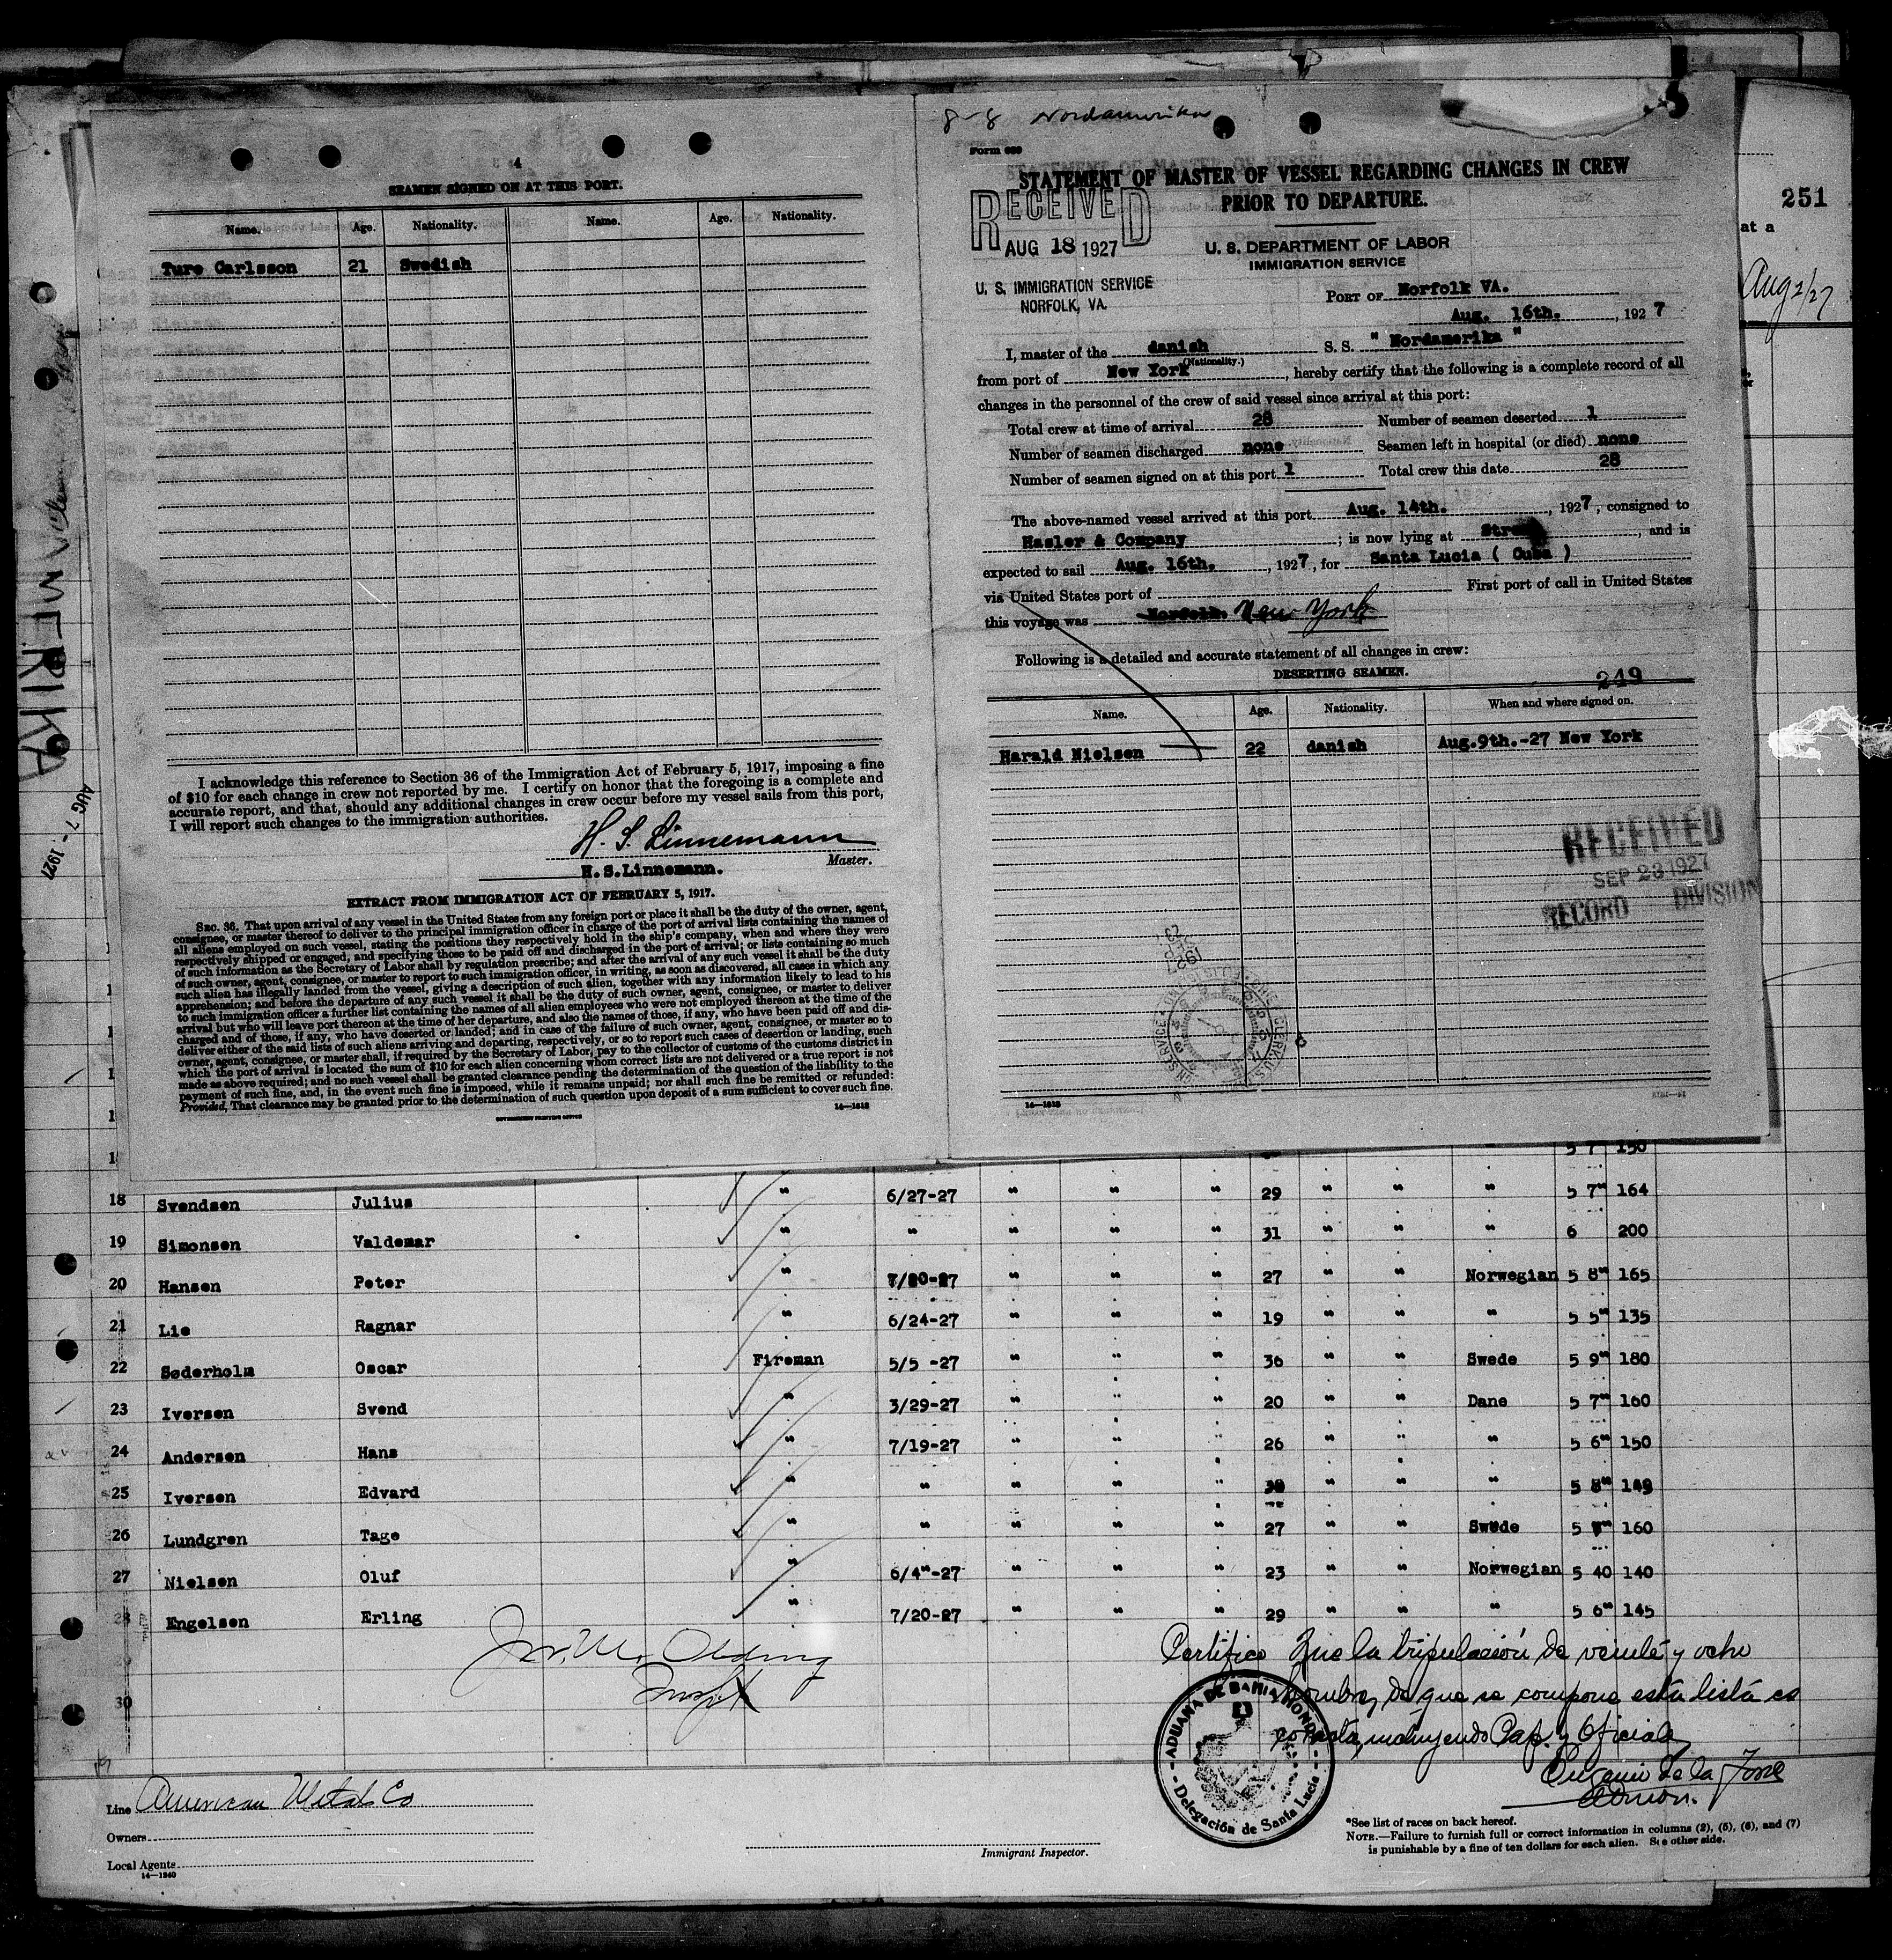 4
SEAMEN SIGNED ON AT THIS PORT.
Name. Age. Nationality. Name. Age. Nationality.
Ture Carlsson 21 Swedish
I acknowledge this reference to Section 36 of the Immigration Act of February 5, 1917, imposing a fine
of $10 for each change in crew not reported by me. I certify on honor that the foregoing is a complete and
accurate report, and that, should any additional changes in crew occur before my vessel sails from this port,
I will report such changes to the immigration authorities.
H. S. Linnemann
Master.
H.S.Linnemann.
EXTRACT FROM IMMIGRATION ACT OF FEBRUARY 5, 1917.
SEC. 36. That upon arrival of any vessel in the United States from any foreign port or place it shall be the duty of the owner, agent,
consignee, or master thereof to deliver to the principal immigration officer in charge of the port of arrival lists containing the names of
all aliens employed on such vessel, stating the positions they respectively hold in the ship's company, when and where they were
respectively shipped or engaged, and specifying those to be paid off and discharged in the port of arrival; or lists containing so much
of such information as the Secretary of Labor shall by regulation prescribe; and after the arrival of any such vessel it shall be the duty
of such owner, agent, consignee, or master to report to such immigration officer, in writing, as soon as discovered, all cases in which any
such alien has illegally landed from the vessel, giving a description of such alien, together with any information likely to lead to his
apprehension; and before the departure of any such vessel it shall be the duty of such owner, agent, consignee, or master to deliver
to such immigration officer a further list containing the names of all alien employees who were not employed thereon at the time of the
arrival but who will leave port thereon at the time of her departure, and also the names of those, if any, who have been paid off and dis-
charged and of those, if any, who have deserted or landed; and in case of the failure of such owner, agent, consignee, or master so to
deliver either of the said lists of such aliens arriving and departing, respectively, or so to report such cases of desertion or landing, such
owner, agent, consignee, or master shall, if required by the Secretary of Labor, pay to the collector of customs of the customs district in
which the port of arrival is located the sum of $10 for each alien concerning whom correct lists are not delivered or a true report is not
made as above required; and no such vessel shall be granted clearance pending the determination of the question of the liability to the
payment of such fine, and, in the event such fine is imposed, while it remains unpaid; nor shall such fine be remitted or refunded:
Provided, That clearance may be granted prior to the determination of such question upon deposit of a sum sufficient to cover such fine.
GOVERNMENT PRINTING OFFICE 14—1818
8-8 Nordamerika
Form 689
STATEMENT OF MASTER OF VESSEL REGARDING CHANGES IN CREW
PRIOR TO DEPARTURE.
RECEIVED
AUG 18 1927
U. S. IMMIGRATION SERVICE
NORFOLK, VA.
U. S. DEPARTMENT OF LABOR
IMMIGRATION SERVICE
PORT OF Norfolk VA.
Aug. 16th. , 1927
I, master of the danish S. S. " Nordamerika "
(Nationality.)
from port of New York , hereby certify that the following is a complete record of all
changes in the personnel of the crew of said vessel since arrival at this port:
Total crew at time of arrival 28 Number of seamen deserted 1
Number of seamen discharged none Seamen left in hospital (or died) none
Number of seamen signed on at this port 1 Total crew this date 28
The above-named vessel arrived at this port Aug. 14th. , 1927, consigned to
Hasler & Company ; is now lying at Stream , and is
expected to sail Aug. 16th. , 1927, for Santa Lucia ( Cuba )
via United States port of First port of call in United States
this voyage was Norfolk. New York
Following is a detailed and accurate statement of all changes in crew:
DESERTING SEAMEN.
249
Name. Age. Nationality. When and where signed on.
Harald Nielsen 22 danish Aug.9th.-27 New York
RECEIVED
SEP 23 1927
RECORD DIVISION
14—1818
251
at a
Aug 2/27
AMERIKA
AUG 7 - 1927
5 7 150
18 Svendsen Julius " 6/27-27 " " " 29 " " " 5 7" 164
19 Simonsen Valdemar " " " " " 31 " " " 6 200
20 Hansen Peter " 7/20-27 " " " 27 " " Norwegian 5 8" 165
21 Lie Ragnar " 6/24-27 " " " 19 " " " 5 5" 135
22 Søderholm Oscar Fireman 5/5 -27 " " " 36 " " Swede 5 9" 180
23 Iversen Svend " 3/29-27 " " " 20 " " Dane 5 7" 160
24 Andersen Hans " 7/19-27 " " " 26 " " " 5 6" 150
25 Iversen Edvard " " " " " 30 " " " 5 8" 149
26 Lundgren Tage " " " " " 27 " " Swede 5 160
27 Nielsen Oluf " 6/4"-27 " " " 23 " " Norwegian 5 40 140
28 Engelsen Erling " 7/20-27 " " " 29 " " " 5 6" 145
30
Certifico Que la tripulación de veinte y ocho
hombres de que se compone esta lista es
correcta, incluyendo Cap. y Oficiales
Eugenio de la Torre
Admon.
ADUANA DE BAHIA HONDA
Delegación de Santa Lucia
Line American Metal Co
Owners
Local Agents
14—1240
Immigrant Inspector.
*See list of races on back hereof.
NOTE.—Failure to furnish full or correct information in columns (2), (5), (6), and (7)
is punishable by a fine of ten dollars for each alien. See other side.